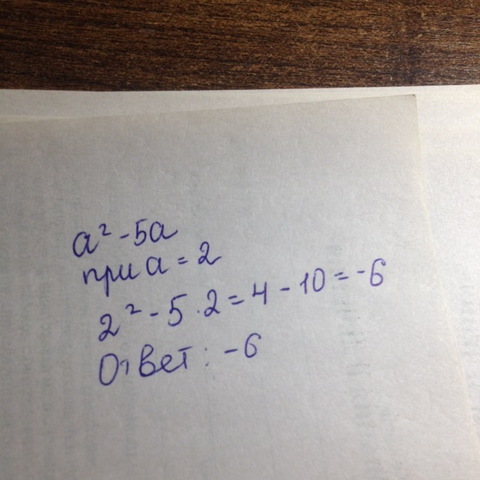 a² - 5a
при a = 2
2² - 5 · 2 = 4 - 10 = -6
Ответ: -6